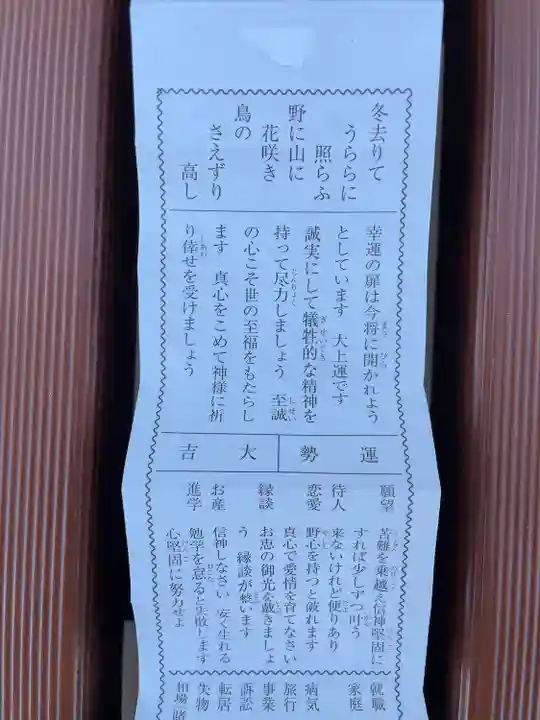 冬去りて
うららに
照らふ
野に山に
花咲き
鳥の
さえずり
高し
幸運の扉は今将に開かれよう
としています 大上運です
誠実にして犠牲的な精神を
持って尽力しましょう 至誠
の心こそ世の至福をもたらし
ます 真心をこめて神様に祈
り倖せを受けましょう
運勢
大吉
願望 苦難を乗越え信神堅固に
すれば少しずつ叶う
待人 来ないけれど便りあり
恋愛 野心を持つと敗れます
真心で愛情を育てなさい
縁談 お恵の御光を戴きましょ
う 縁談が整います
お産 信神しなさい 安く生れる
進学 勉学を怠ると失敗します
心堅固に努力せよ
就職
家庭
病気
旅行
事業
訴訟
転居
失物
相場